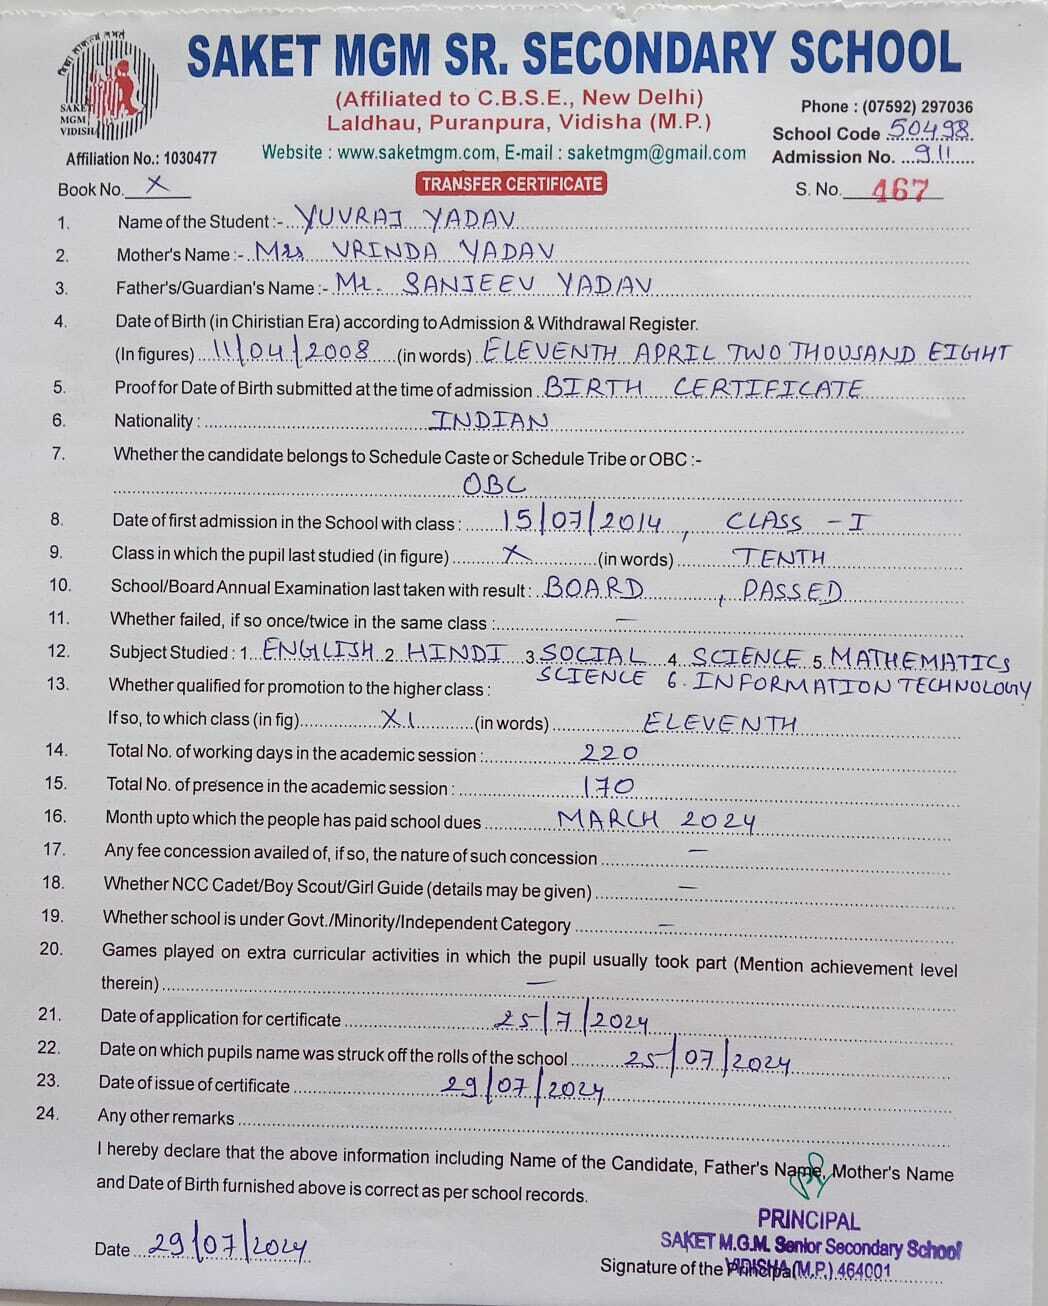 SAKET MGM SR. SECONDARY SCHOOL
SAKET
MGM
VIDISHA
(Affiliated to C.B.S.E., New Delhi)
Laldhau, Puranpura, Vidisha (M.P.)
Phone : (07592) 297036
School Code 50498
Affiliation No.: 1030477
Website : www.saketmgm.com, E-mail : saketmgm@gmail.com
Admission No. 911
Book No. X
TRANSFER CERTIFICATE
S. No. 467
1. Name of the Student :- YUVRAJ YADAV
2. Mother's Name :- Mrs VRINDA YADAV
3. Father's/Guardian's Name :- Mr. SANJEEV YADAV
4. Date of Birth (in Chiristian Era) according to Admission & Withdrawal Register.
(In figures) 11/04/2008 (in words) ELEVENTH APRIL TWO THOUSAND EIGHT
5. Proof for Date of Birth submitted at the time of admission BIRTH CERTIFICATE
6. Nationality : INDIAN
7. Whether the candidate belongs to Schedule Caste or Schedule Tribe or OBC :-
OBC
8. Date of first admission in the School with class : 15/07/2014, CLASS - I
9. Class in which the pupil last studied (in figure) X (in words) TENTH
10. School/Board Annual Examination last taken with result : BOARD, PASSED
11. Whether failed, if so once/twice in the same class : —
12. Subject Studied : 1. ENGLISH 2. HINDI 3. SOCIAL 4. SCIENCE 5. MATHEMATICS
SCIENCE 6. INFORMATION TECHNOLOGY
13. Whether qualified for promotion to the higher class :
If so, to which class (in fig) XI (in words) ELEVENTH
14. Total No. of working days in the academic session : 220
15. Total No. of presence in the academic session : 170
16. Month upto which the people has paid school dues MARCH 2024
17. Any fee concession availed of, if so, the nature of such concession —
18. Whether NCC Cadet/Boy Scout/Girl Guide (details may be given) —
19. Whether school is under Govt./Minority/Independent Category —
20. Games played on extra curricular activities in which the pupil usually took part (Mention achievement level
therein) —
21. Date of application for certificate 25/7/2024
22. Date on which pupils name was struck off the rolls of the school 25/07/2024
23. Date of issue of certificate 29/07/2024
24. Any other remarks
I hereby declare that the above information including Name of the Candidate, Father's Name, Mother's Name
and Date of Birth furnished above is correct as per school records.
PRINCIPAL
SAKET M.G.M. Senior Secondary School
VIDISHA (M.P.) 464001
Date 29/07/2024
Signature of the Principal